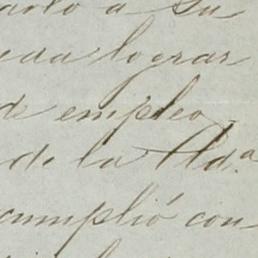 a su
lograr
de empleo
de la Hda.
cumplió con-